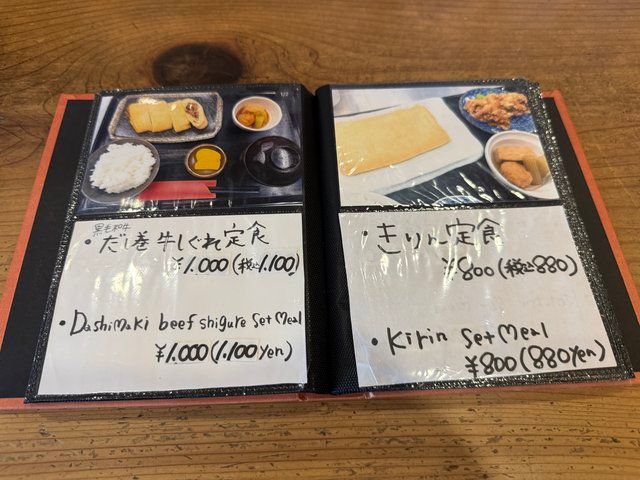 黒毛和牛
・だし巻牛しぐれ定食
¥1.000(税込1.100)
・Dashimaki beef shigure set Meal
¥1.000(1.100yen)
・きりん定食
¥800(税込880)
・Kirin set Meal
¥800(880yen)